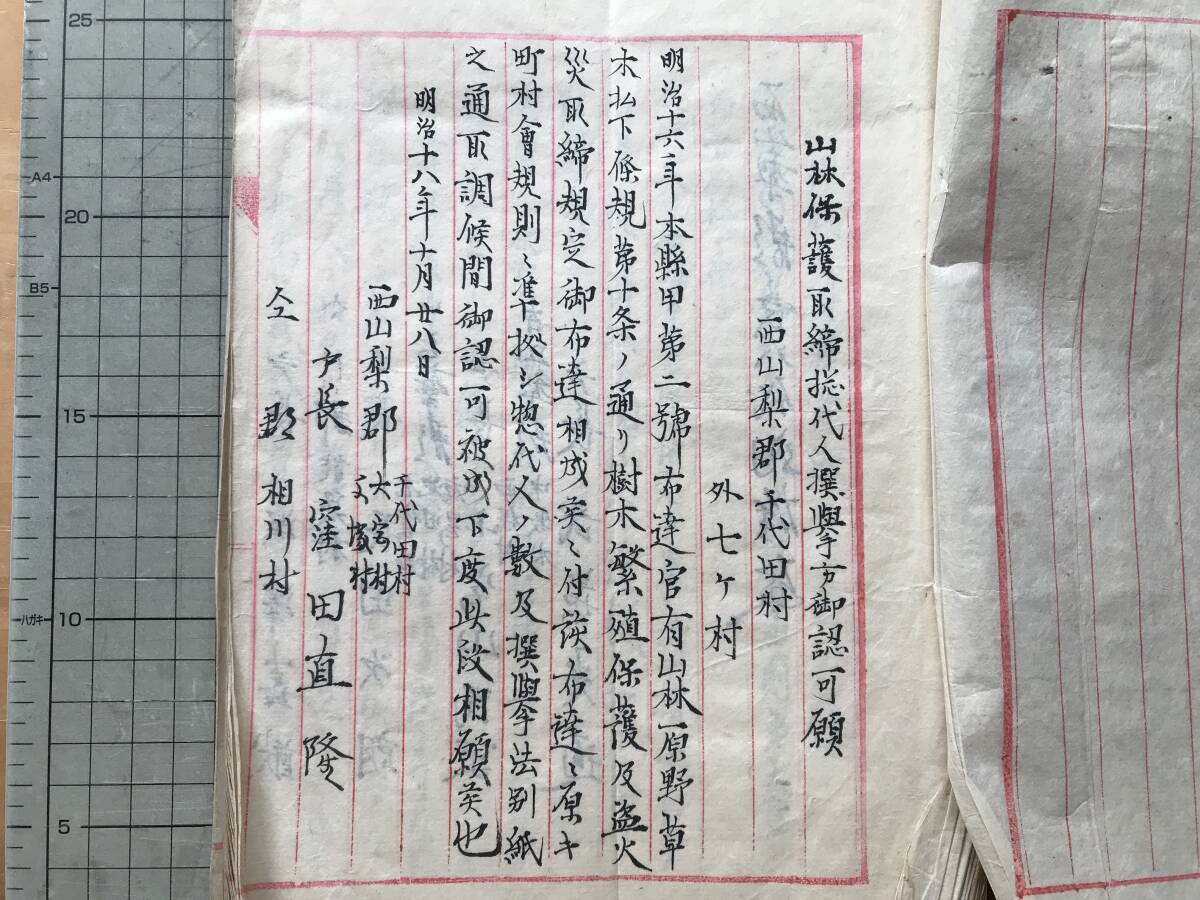 山林保護取締捴代人撰擧方御認可願
西山梨郡千代田村
外七ヶ村
明治十六年本縣甲第二號布達官有山林原野草
木払下條規第十条ノ通リ樹木繁殖保護及盗火
災取締規定御布達相成候ニ付該布達ニ原キ
町村會規則ニ準拠シ惣代人ノ数及撰擧法別紙
之通取調候間御認可被成下度此段相願候也
明治十八年十月廿八日
西山梨郡
千代田村
大宮村
村
戸長 窪田直隆
仝 郡 相川村
25
A4
20
B5
15
ハガキ
10
5